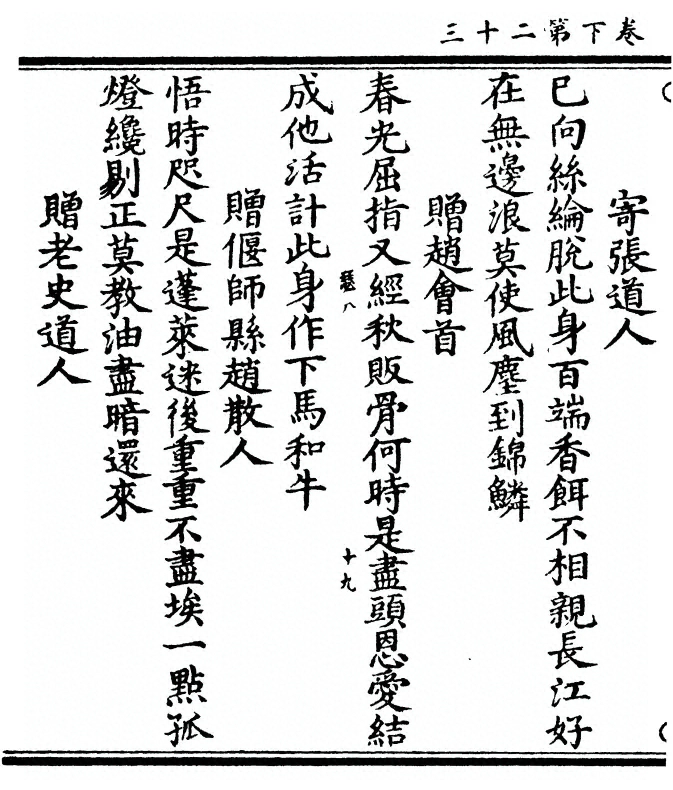 卷下第二十三
寄張道人
已向絲綸脫此身百端香餌不相親長江好
在無邊浪莫使風塵到錦鱗
贈趙會首
春光屈指又經秋販骨何時是盡頭恩愛結
十九
成他活計此身作下馬和牛
贈偃師縣趙散人
悟時咫尺是蓬萊迷後重重不盡埃一點孤
燈纔剔正莫教油盡暗還來
贈老史道人